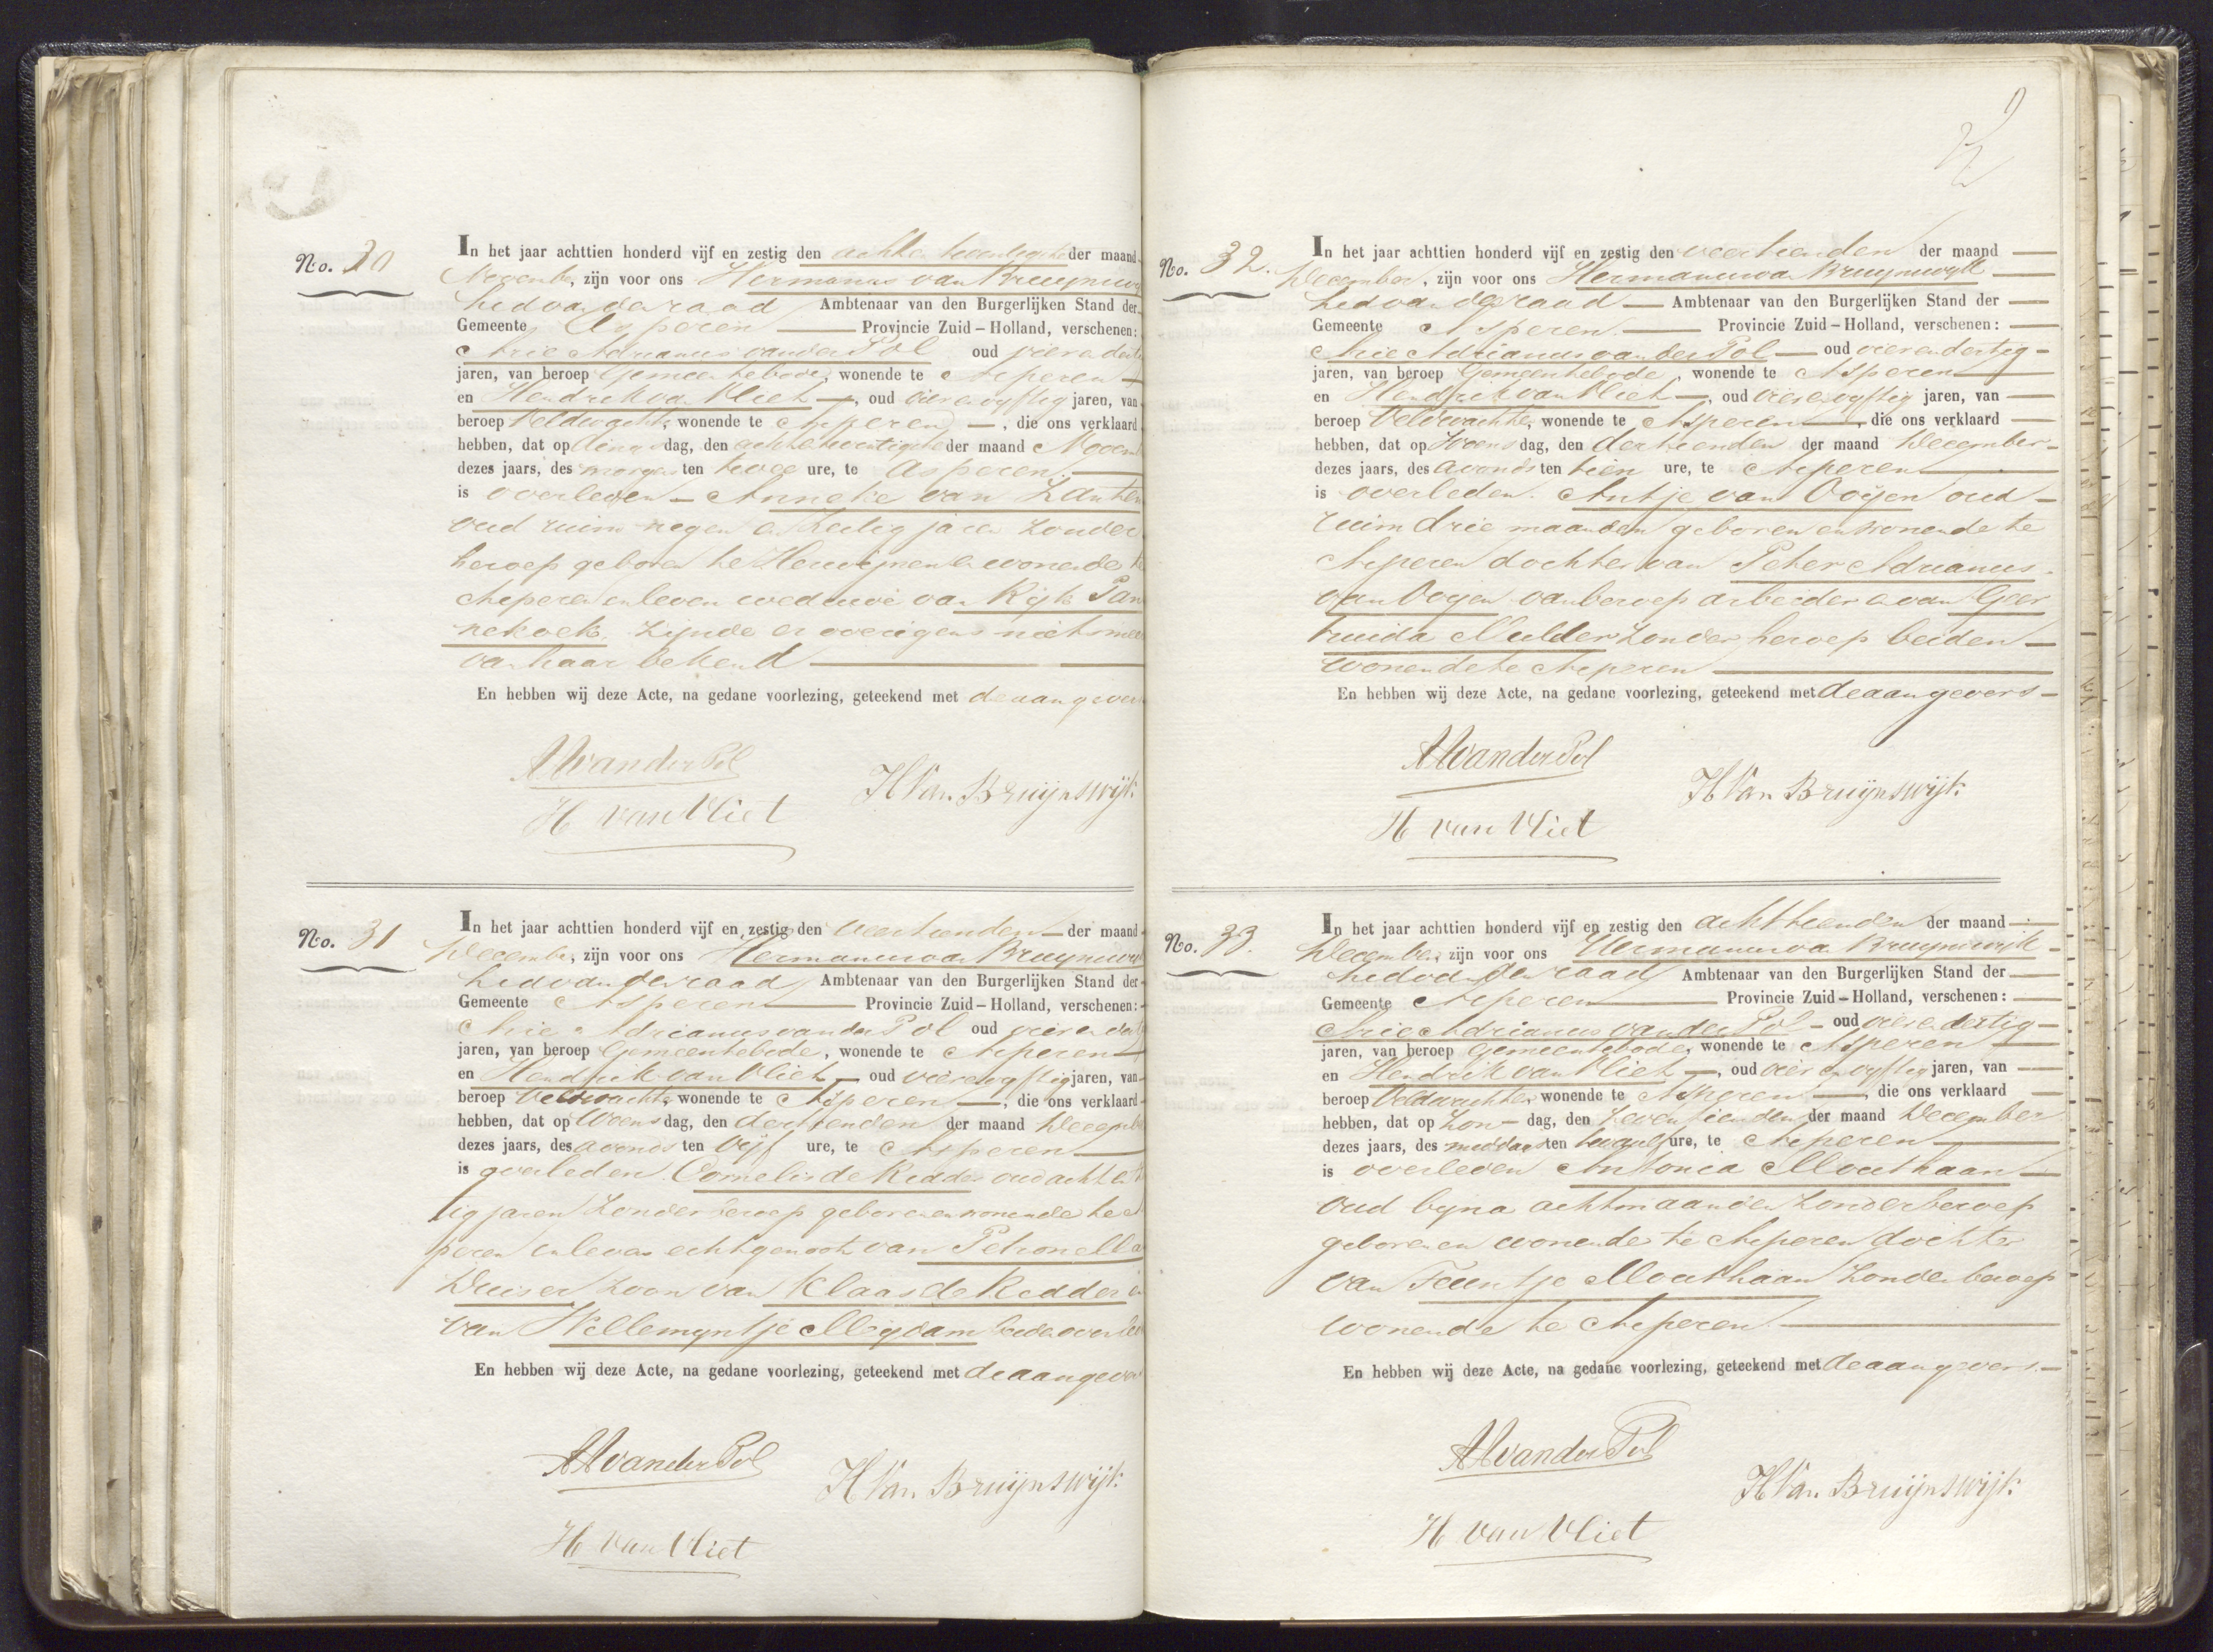 No. 30
In het jaar achttien honderd vijf en zestig den achtentwentigste der maand
November, zijn voor ons Hermanus van Bruynswy
Lid van den raad Ambtenaar van den Burgerlijken Stand der
Gemeente Asperen Provincie Zuid-Holland, verschenen:
Arie Adrianus van der Pol oud vier en derti
jaren, van beroep Gemeentebode, wonende te Asperen
en Hendrik van Vliet, oud vier en vyftig jaren, van
beroep Veldwachter, wonende te Asperen, die ons verklaard
hebben, dat op dingsdag, den achtentwintigste der maand Novem
dezes jaars, des morgens ten twee ure, te Asperen
is overleden Anneke van Zanten
oud ruim negen en zestig jaren zonder
beroep geboren te Herwijnen en wonende te
Asperen en leven weduwe van Kijk Pan
nekoek, zijnde er overigens niet meer
van haar bekend
En hebben wij deze Acte, na gedane voorlezing, geteekend met de aangever
AAvanderPol
H van Vliet
H Van Bruijnswijk
No. 31
In het jaar achttien honderd vijf en zestig den veertienden der maand
December, zijn voor ons Hermanus van Bruynswy
Lid van den raad Ambtenaar van den Burgerlijken Stand der
Gemeente Asperen Provincie Zuid-Holland, verschenen:
Arie Adrianus van der Pol oud vier en dert
jaren, van beroep Gemeentebode, wonende te Asperen
en Hendrik van Vliet oud vier en vyftig jaren, van
beroep Veldwachter, wonende te Asperen, die ons verklaard
hebben, dat op Woensdag, den dertienden der maand Decemb
dezes jaars, des avonds ten vyf ure, te Asperen
is overleden Cornelis de Ridder oud acht en
tig jaren zonder beroep geboren en wonende te As
peren in leven echtgenoot van Petronella
Duiser zoon van Klaas de Ridder en
van Willemyntje Migdam beide overle
En hebben wij deze Acte, na gedane voorlezing, geteekend met de aangever
AAvanderPol
H Van Bruijnswijk
H van Vliet
No. 32.
In het jaar achttien honderd vijf en zestig den veertienden der maand
December, zijn voor ons Hermanus van Bruynswyk
Lid van den raad Ambtenaar van den Burgerlijken Stand der
Gemeente Asperen Provincie Zuid-Holland, verschenen:
Arie Adrianus van der Pol oud vier en dertig
jaren, van beroep Gemeentebode, wonende te Asperen
en Hendrik van Vliet, oud vier en vyftig jaren, van
beroep Veldwachter, wonende te Asperen, die ons verklaard
hebben, dat op Woensdag, den dertienden der maand December
dezes jaars, des avonds ten tien ure, te Asperen
is overleden Antje van Ooijen oud
ruim drie maanden geboren en wonende te
Asperen dochter van Peter Adrianus
van Ooyen van beroep arbeider en van Geer
truida Mulder zonder beroep beiden
wonende te Asperen
En hebben wij deze Acte, na gedane voorlezing, geteekend met de aangevers
AAvanderPol
H Van Bruijnswijk
H van Vliet
No. 33.
In het jaar achttien honderd vijf en zestig den achttienden der maand
December, zijn voor ons Hermanus van Bruynswijk
Lid van den raad Ambtenaar van den Burgerlijken Stand der
Gemeente Asperen Provincie Zuid-Holland, verschenen:
Arie Adrianus van der Pol oud vier en dertig
jaren, van beroep Gemeentebode, wonende te Asperen
en Hendrik van Vliet, oud vier en vyftig jaren, van
beroep Veldwachter, wonende te Asperen, die ons verklaard
hebben, dat op Zondag, den zeventienden der maand December
dezes jaars, des middags ten twaalf ure, te Asperen
is overleden Antonia Mouthaan
oud byna acht maanden zonder beroep
geboren en wonende te Asperen dochter
van Teuntje Mouthaan zonder beroep
wonende te Asperen
En hebben wij deze Acte, na gedane voorlezing, geteekend met de aangevers
AAvanderPol
H Van Bruijnswijk
H van Vliet